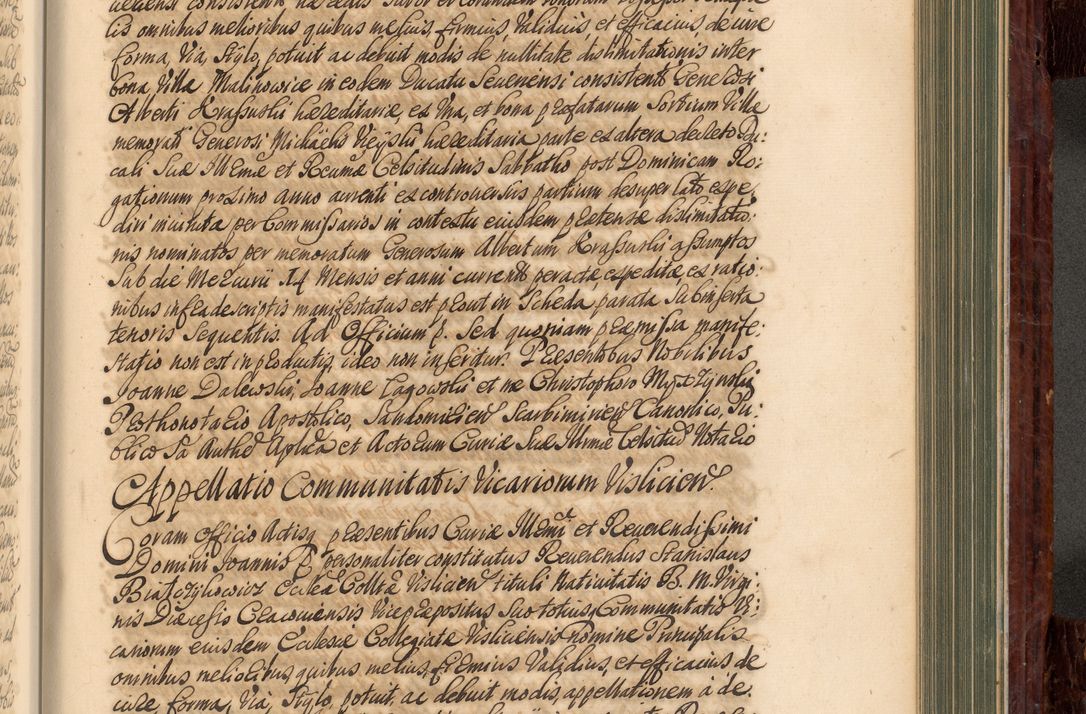 lis omnibus melioribus quibus melius, firmius, Validius, et efficacius, de iure
forma, Via, Stylo, potuit ac debuit modis de nullitate dislimitationis inter
bona Villæ Malinowice in eodem Ducatu Seuenensi consistenti Gene
Alberti Krassuski hæreditariæ, ex Vna, et bona præfatarum Sortium Villæ
memorati Generosi Michaelis hæreditaria parte ex altera decreto Du:
cali Suæ Illmæ et Reumæ Celsitudinis Sabbatho post Dominicam Ro:
gationum proximo Anno currenti ex controuersiis partium desuper lato expe
diri iniuncta per Commissarios in contextu eiusdem prætensæ dislimitatio:
nis nominatos per memoratum Generosum Albertum Krassuski assumptos
Sub die Mercurii 14 Mensis et anni currenti peractæ, expeditæ, ex ratio:
nibus infra descriptis manifestatus est prout in Scheda parata Subinserta
tenoris Sequentis. Ad Officium p. Sed quoniam præmissa manife:
statio non est in productis, ideo non inseritur. Præsentibus Nobilibus
Joanne Dalewski, Joanne Lagowski et me Christophoro
Prothonotario Apostolico, Sandomirien Scarbimirien Canonico, Pu:
blico Sa Authe Aplica et Actorum Curiæ Suæ Illmæ Celsitud Notario
Appellatio Communitatis Vicariorum Vislicien.
Coram Officio Actisq præsentibus Curiæ Illmi et Reuerendissimi
Domini Joannis P personaliter constitutus Reuerendus Stanislaus
Ecclæ Colltæ Vislicien tituli Natiuitatis B. M. Virgi:
nis Diœcesis Cracouiensis Viceprepositus Suo totiusq Communitatis Vi:
cariorum eiusdem Ecclesiæ Collegiatæ Visliciensis nomine Principalis
omnibus melioribus, quibus melius, firmius Validius, et efficacius de
iure, forma, Via, Stylo, potuit, ac debuit modis, appellationem à de